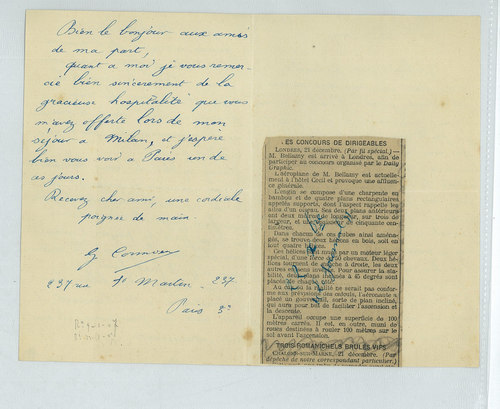 Bien le bonjour aux amis
de ma part,
quant a moi je vous remer-
cie bien sincerement de la
gracieuse hospitalité que vous
m'avez offerte lors de mon
séjour a Milan, et j'espère
bien vous voir a Paris un de
ces jours.
Recevez cher ami, une cordiale
poignee de main
237 rue St Martin 237
Paris 3e
LES CONCOURS DE DIRIGEABLES
LONDRES, 21 décembre. (Par fil spécial.) —
M. Bellamy est arrivé à Londres, afin de
participer au concours organisé par le Daily
Graphic.
L'aéroplane de M. Bellamy est actuelle-
ment à l'hôtel Cecil et provoque une affluen-
ce générale.
L'engin se compose d'une charpente en
bambou et de quatre plans rectangulaires
appelés supports, dont l'aspect rappelle les
ailes d'un oiseau. Ses deux plans antérieurs
ont deux mètres de hauteur, sur trois de
largeur, et une épaisseur de cinquante cen-
timètres.
Dans chacun de ces cubes ainsi aména-
gés, se trouve deux hélices en bois, soit en
tout quatre hélices.
Ces hélices par un moteur léger
spécial, d'une force de 50 chevaux. Deux hé-
lices tournent de gauche à droite, les deux
autres en sens inverse. Pour assurer la sta-
bilité, deux plans inclinés à 45 degrés sont
placés de chaque côté.
Au cas où l'équilibre ne serait pas confor-
me aux prévisions des calculs, l'aéronaute a
placé un gouvernail, sorte de plan incliné,
qui aura pour but de faciliter l'ascension et
la descente.
L'appareil occupe une superficie de 100
mètres carrés. Il est, en outre, muni de
roues destinées à rouler 100 mètres sur le
sol avant l'ascension.
TROIS ROMANICHELS BRULÉS VIFS
CHALONS-SUR-MARNE, 21 décembre. (Par
dépêche de notre correspondant particulier.)